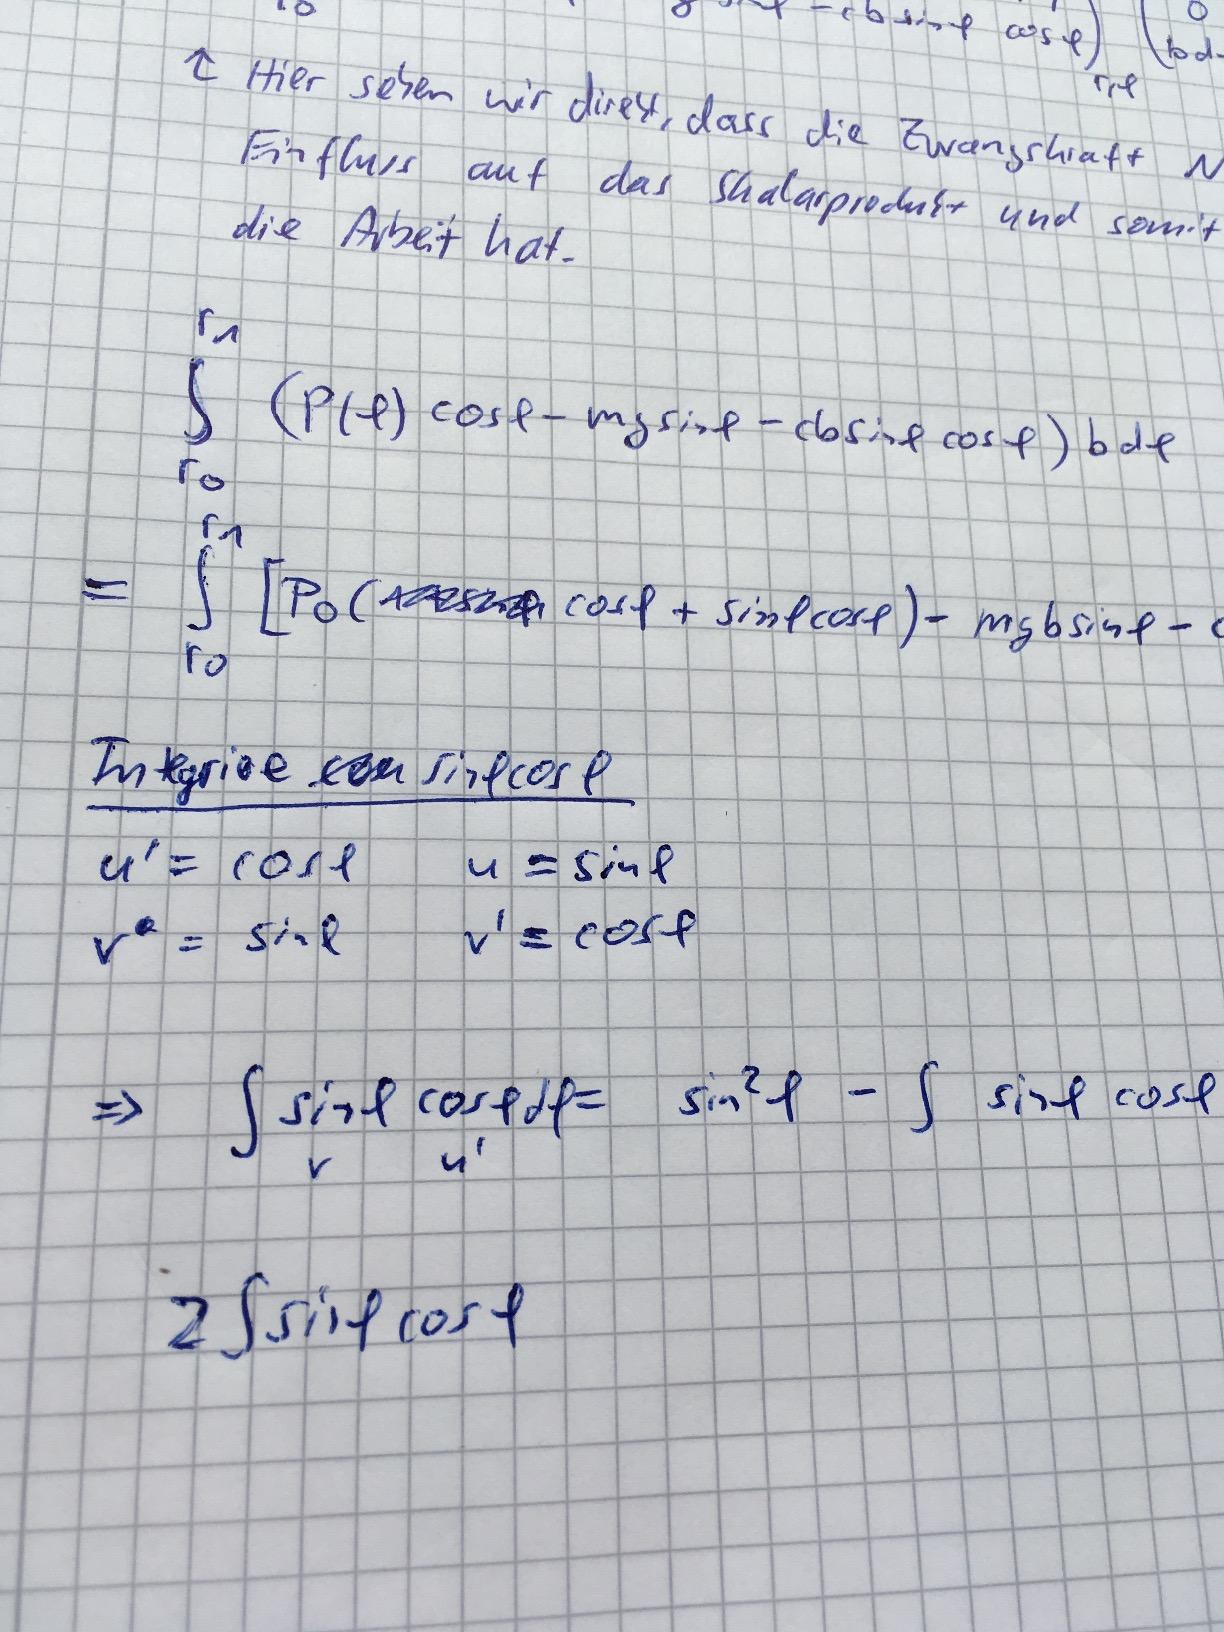 r0 mg sinφ - cb sinφ cosφ) (0
r,φ b d
↑ Hier sehen wir direkt, dass die Zwangskraft N
Einfluss auf das Skalarprodukt und somit
die Arbeit hat.
r1
∫ (P(φ) cosφ - mg sinφ - cb sinφ cosφ) b dφ
r0
r1
= ∫ [P0( cosφ + sinφ cosφ) - mgb sinφ - c
r0
Integriere sinφ cosφ
u' = cosφ u = sinφ
v = sinφ v' = cosφ
=> ∫ sinφ cosφ dφ = sin²φ - ∫ sinφ cosφ
v u'
2 ∫ sinφ cosφ